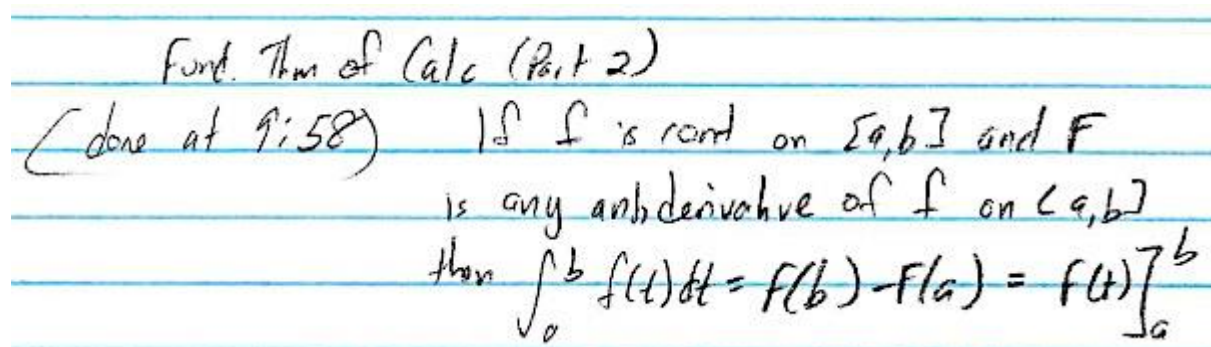 Fund. Thm of Calc (Part 2)
(done at 9:58) If f is cont on [a,b] and F
is any antiderivative of f on [a,b]
then ∫_a^b f(t)dt = F(b)-F(a) = F(t)]_a^b